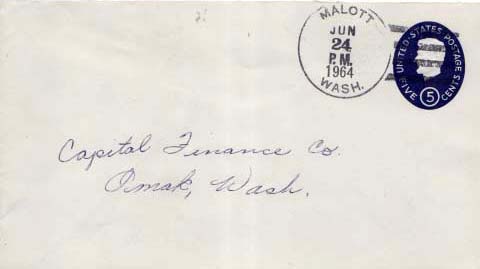 MALOTT
JUN
24
P.M.
1964
WASH.
UNITED·STATES POSTAGE
FIVE 5 CENTS
Capital Finance Co.
Omak, Wash.